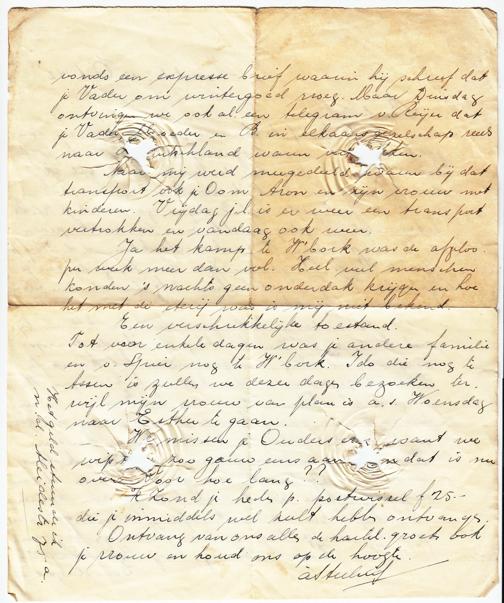 vonds een expresse brief waarin hij schreef dat
je Vader om wintergoed vroeg. Maar Dinsdag
ontvingen we ook al een telegram v. Meijer dat
je Vader, Moeder en B. in elkaars gezelschap reeds
naar Duitschland waren
Naar mij werd meegedeeld waren bij dat
transport ook je Oom Aron en zijn vrouw met
kinderen. Vrijdag j.l. is er weer een transport
vertrokken en vandaag ook weer.
Ja het kamp te W'bork was de afgeloo-
pen week meer dan vol. Heel veel menschen
konden 's nachts geen onderdak krijgen en hoe
het met de was is mij niet bekend.
Een verschrikkelijke toestand.
Tot voor enkele dagen was je andere familie
en v. Spier nog te W'bork. Ido die nog te
Assen is zullen we dezer dagen bezoeken, ter-
wijl mijn vrouw van plan is a.s. Woensdag
naar Esther te gaan.
We missen je Ouders want we
zoo gauw eens aan dat is nu
over. Voor hoe lang??
Ik zond je heden p. postwissel f 25.-
die je inmiddels wel zult hebben ontvangen.
Ontvang van ons allen de hartel. groeten ook
je vrouw en houd ons op de hoogte.
Het geld stuurde ik
n. bl.